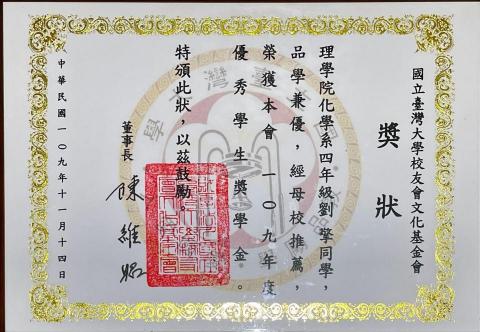 國立臺灣大學校友會文化基金會
獎狀
理學院化學系四年級劉擎同學，
品學兼優，經母校推薦，
榮獲本會一〇九年度
優秀學生獎學金。
特頒此狀，以茲鼓勵。
董事長
陳維昭
中華民國一〇九年十一月十四日